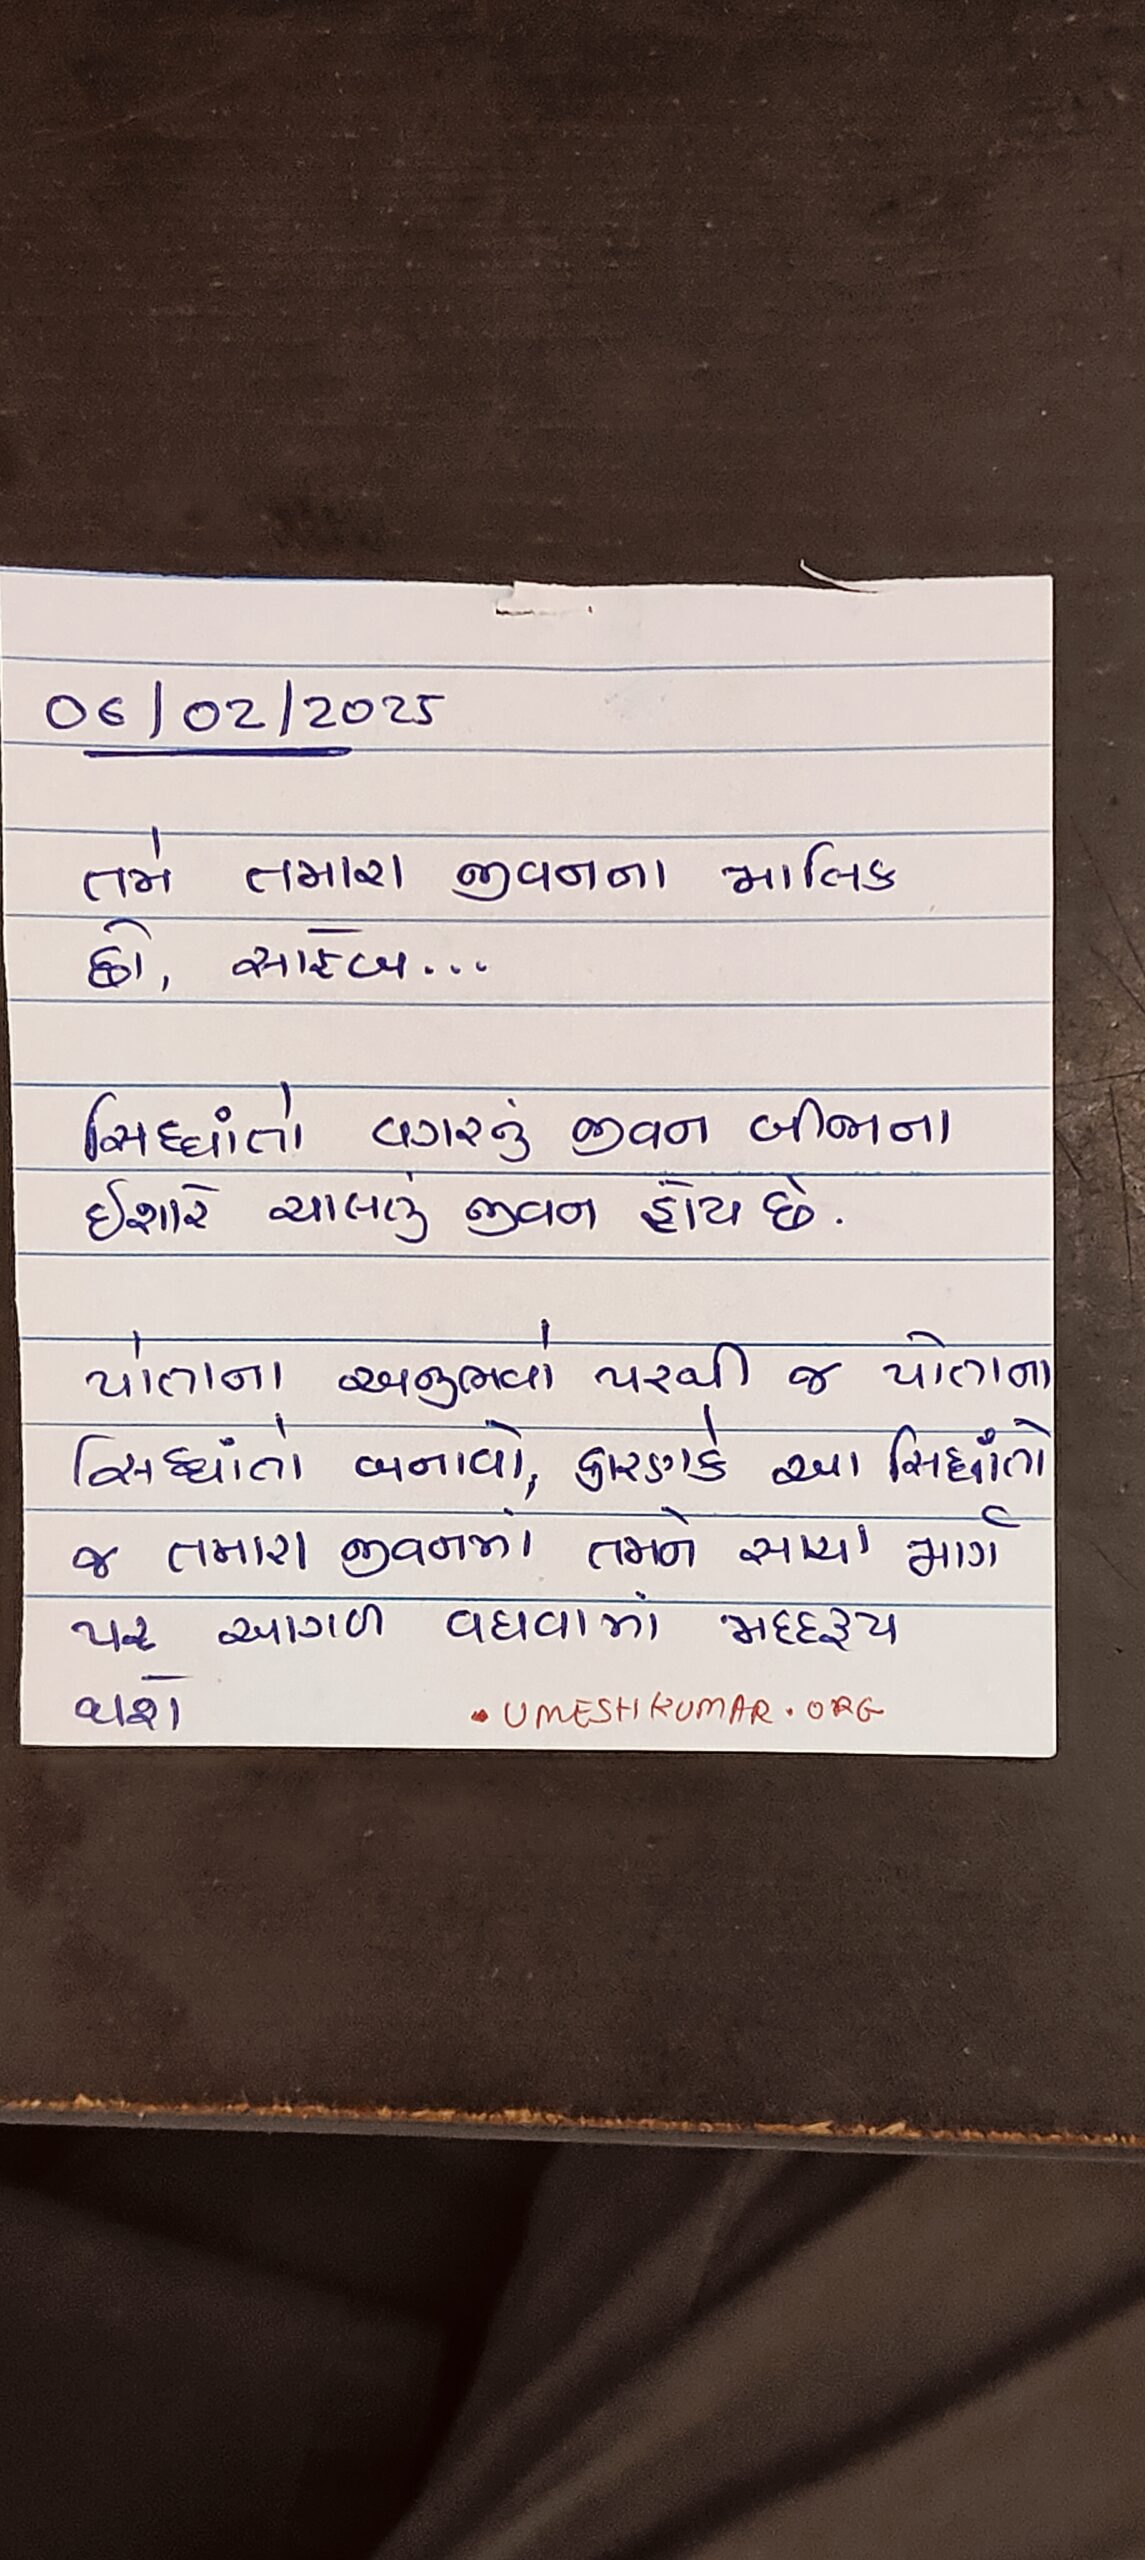 06/02/2025
તમે તમારા જીવનના માલિક
છો, સાહેબ...
સિધ્ધાંતો વગરનું જીવન બીજાના
ઈશારે ચાલતું જીવન હોય છે.
પોતાના અનુભવો પરથી જ પોતાના
સિધ્ધાંતો બનાવો, કારણકે આ સિધ્ધાંતો
જ તમારા જીવનમાં તમને સાચા માર્ગ
પર આગળ વધવામાં મદદરૂપ
થશે
• UMESHKUMAR.ORG